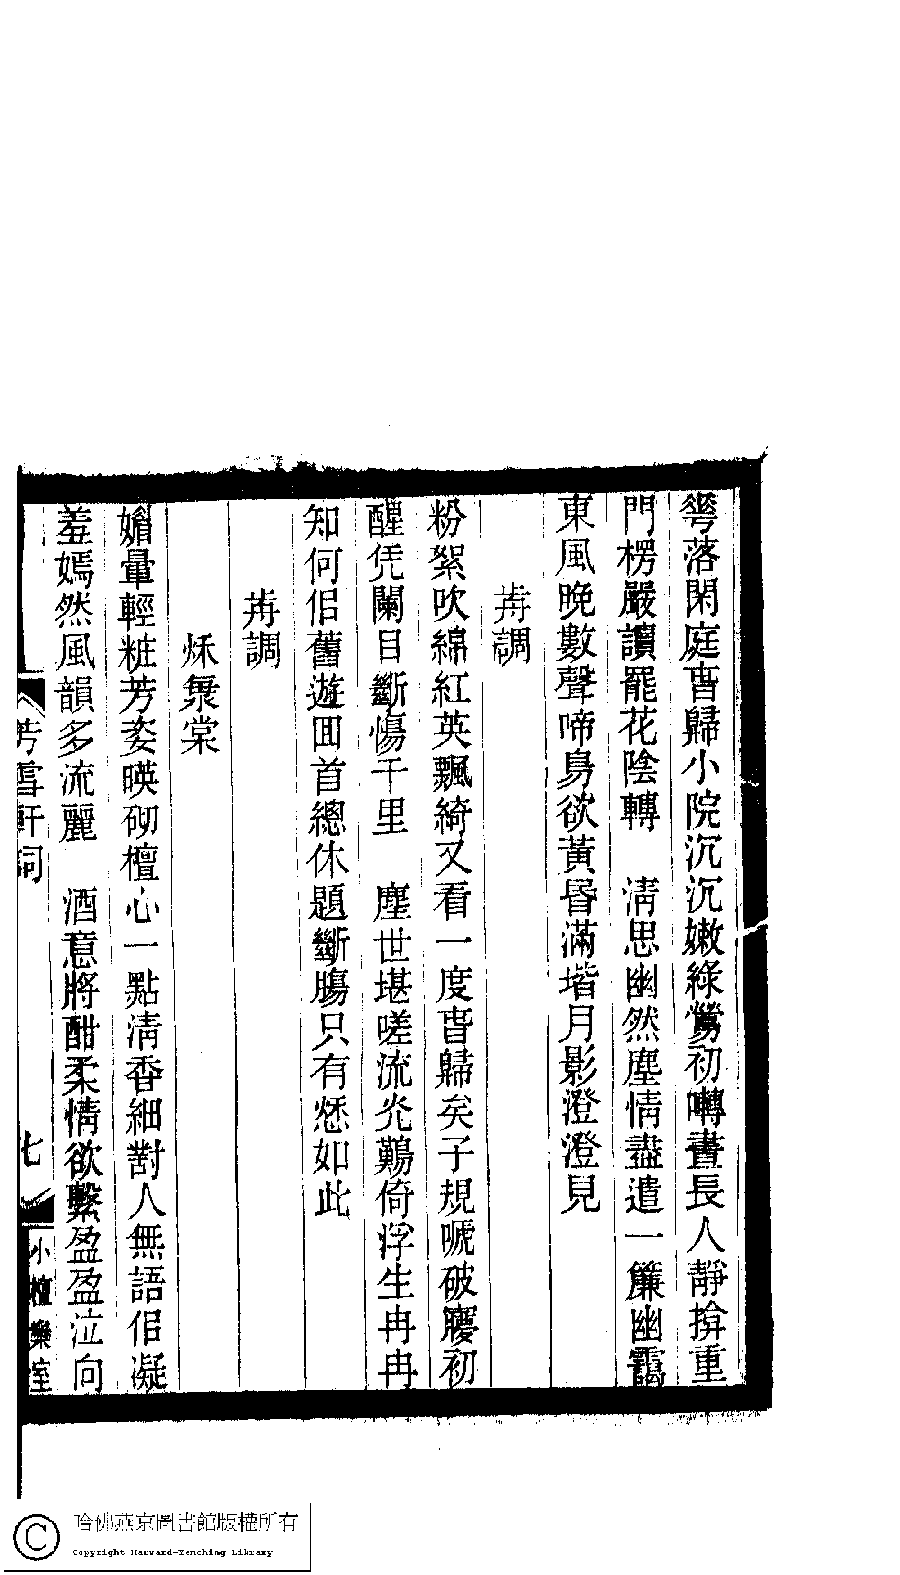 雩落閑庭曺歸小院沉沉嫩綠鶯初囀晝長人靜揜重
門楞嚴讀罷花陰轉　淸思幽然塵情盡遣一簾幽靄
東風晚數聲啼鳥欲黃昬滿堦月影澄澄見
前調
粉絮吹綿紅英飄綺又看一度萅歸矣子規嗁破㝱初
醒凭闌目斷傷千里　塵世堪嗟流光難倚浮生冉冉
知何佀舊遊囬首總休題斷腸只有愁如此
前調
秌海棠
媚暈輕粧芳姿暎砌檀心一點淸香細對人無語佀凝
羞嫣然風韻多流麗　酒意將酣柔情欲繫盈盈泣向
芳雪軒詞
七
小檀欒室
哈佛燕京圖書館版權所有
Copyright Harvard-Yenching Library